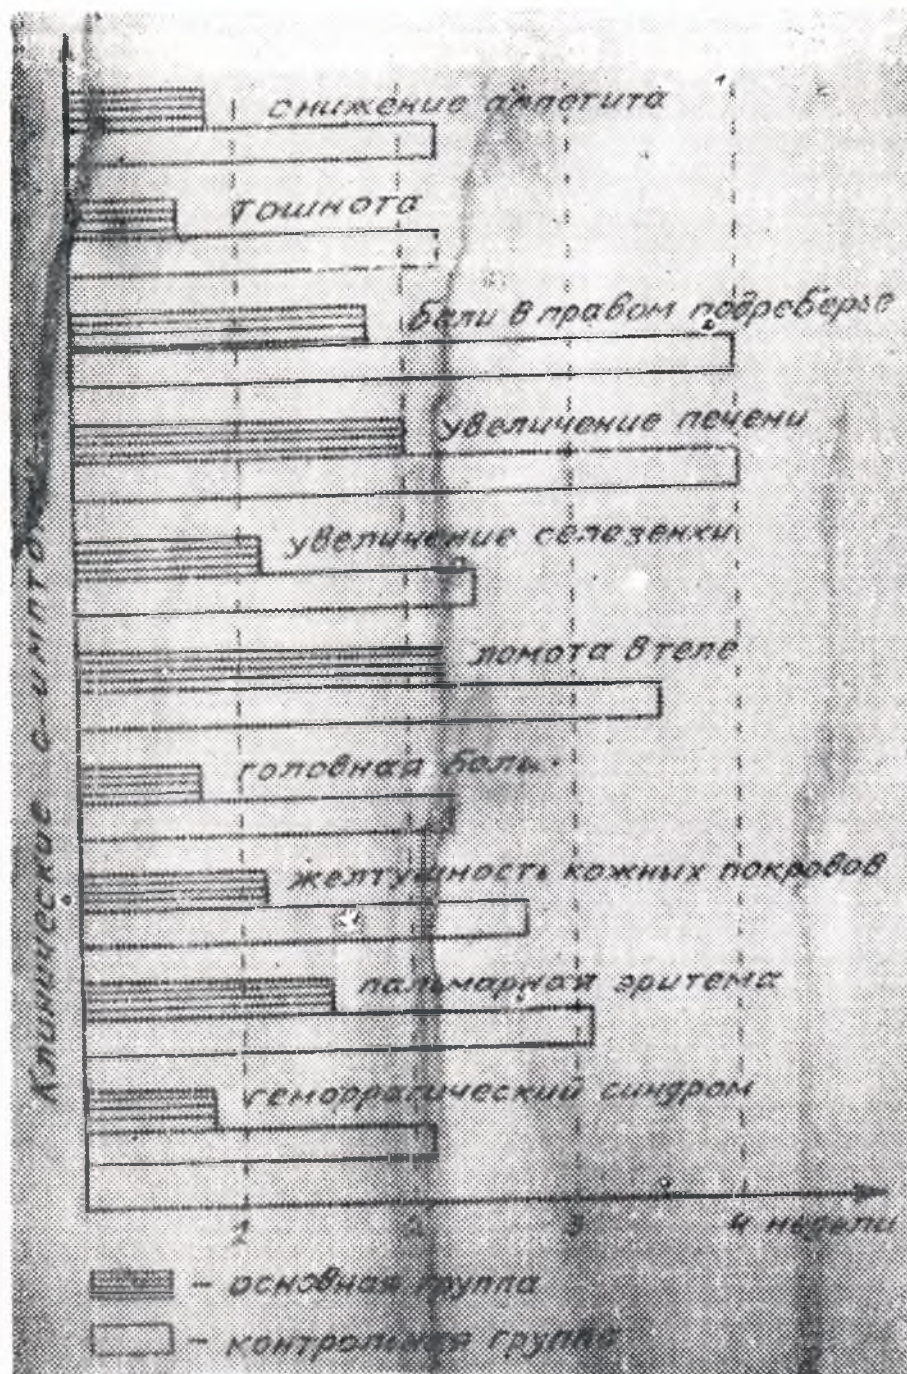 снижение аппетита
тошнота
боли в правом подреберье
увеличение печени
увеличение селезенки
ломота в теле
головная боль
желтушность кожных покровов
пальмарная эритема
геморрагический синдром
Клинические симптомы
1 2 3 4 недели
- основная группа
- контрольная группа